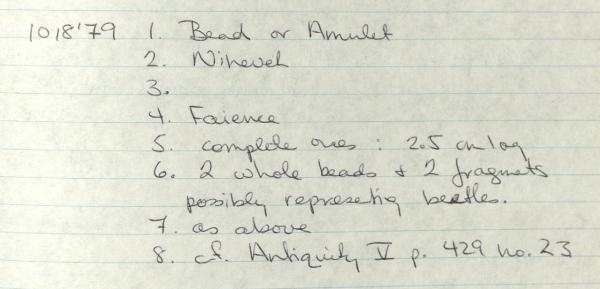 1018'79 1. Bead or Amulet
2. Nineveh
3.
4. Faience
5. complete ones : 2.5 cm long
6. 2 whole beads + 2 fragments
possibly representing beetles.
7. as above
8. cf. Antiquity V p. 429 no. 23